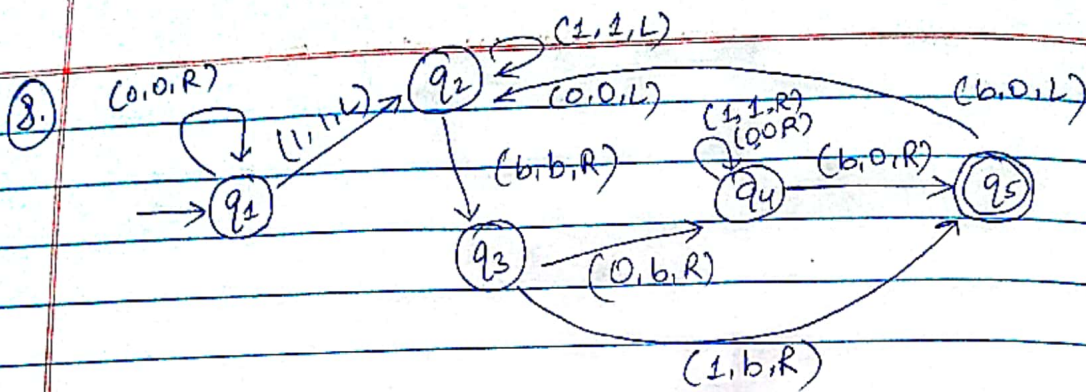 8.
(0,0,R)
(1,1,L)
q2
(1,1,L)
(0,0,L)
(b,0,L)
(b,b,R)
(1,1,R)
(0,0R)
(b,0,R)
q1
q4
q5
q3
(0,b,R)
(1,b,R)